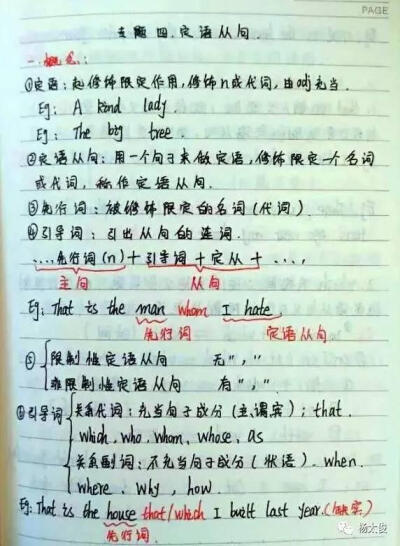 PAGE
专题四.定语从句
一.概念:
①定语:起修饰限定作用,修饰n或代词,由adj充当.
Eg: A kind lady.
Eg: The big tree
②定语从句:用一个句子来做定语,修饰限定一个名词
或代词,称作定语从句.
③先行词:被修饰限定的名词(代词).
④引导词:引出从句的连词.
....先行词(n)+引导词+定从+....
主句 从句
Eg: That is the man whom I hate.
先行词 定语从句
⑤ 限制性定语从句 无","
非限制性定语从句 有","
⑥引导词 关系代词:充当句子成分(主.谓.宾);that.
which, who, whom, whose, as
关系副词:不充当句子成分(状语).when.
where, why, how.
Eg: That is the house that/which I built last year.(缺宾)
先行词.
杨太俊